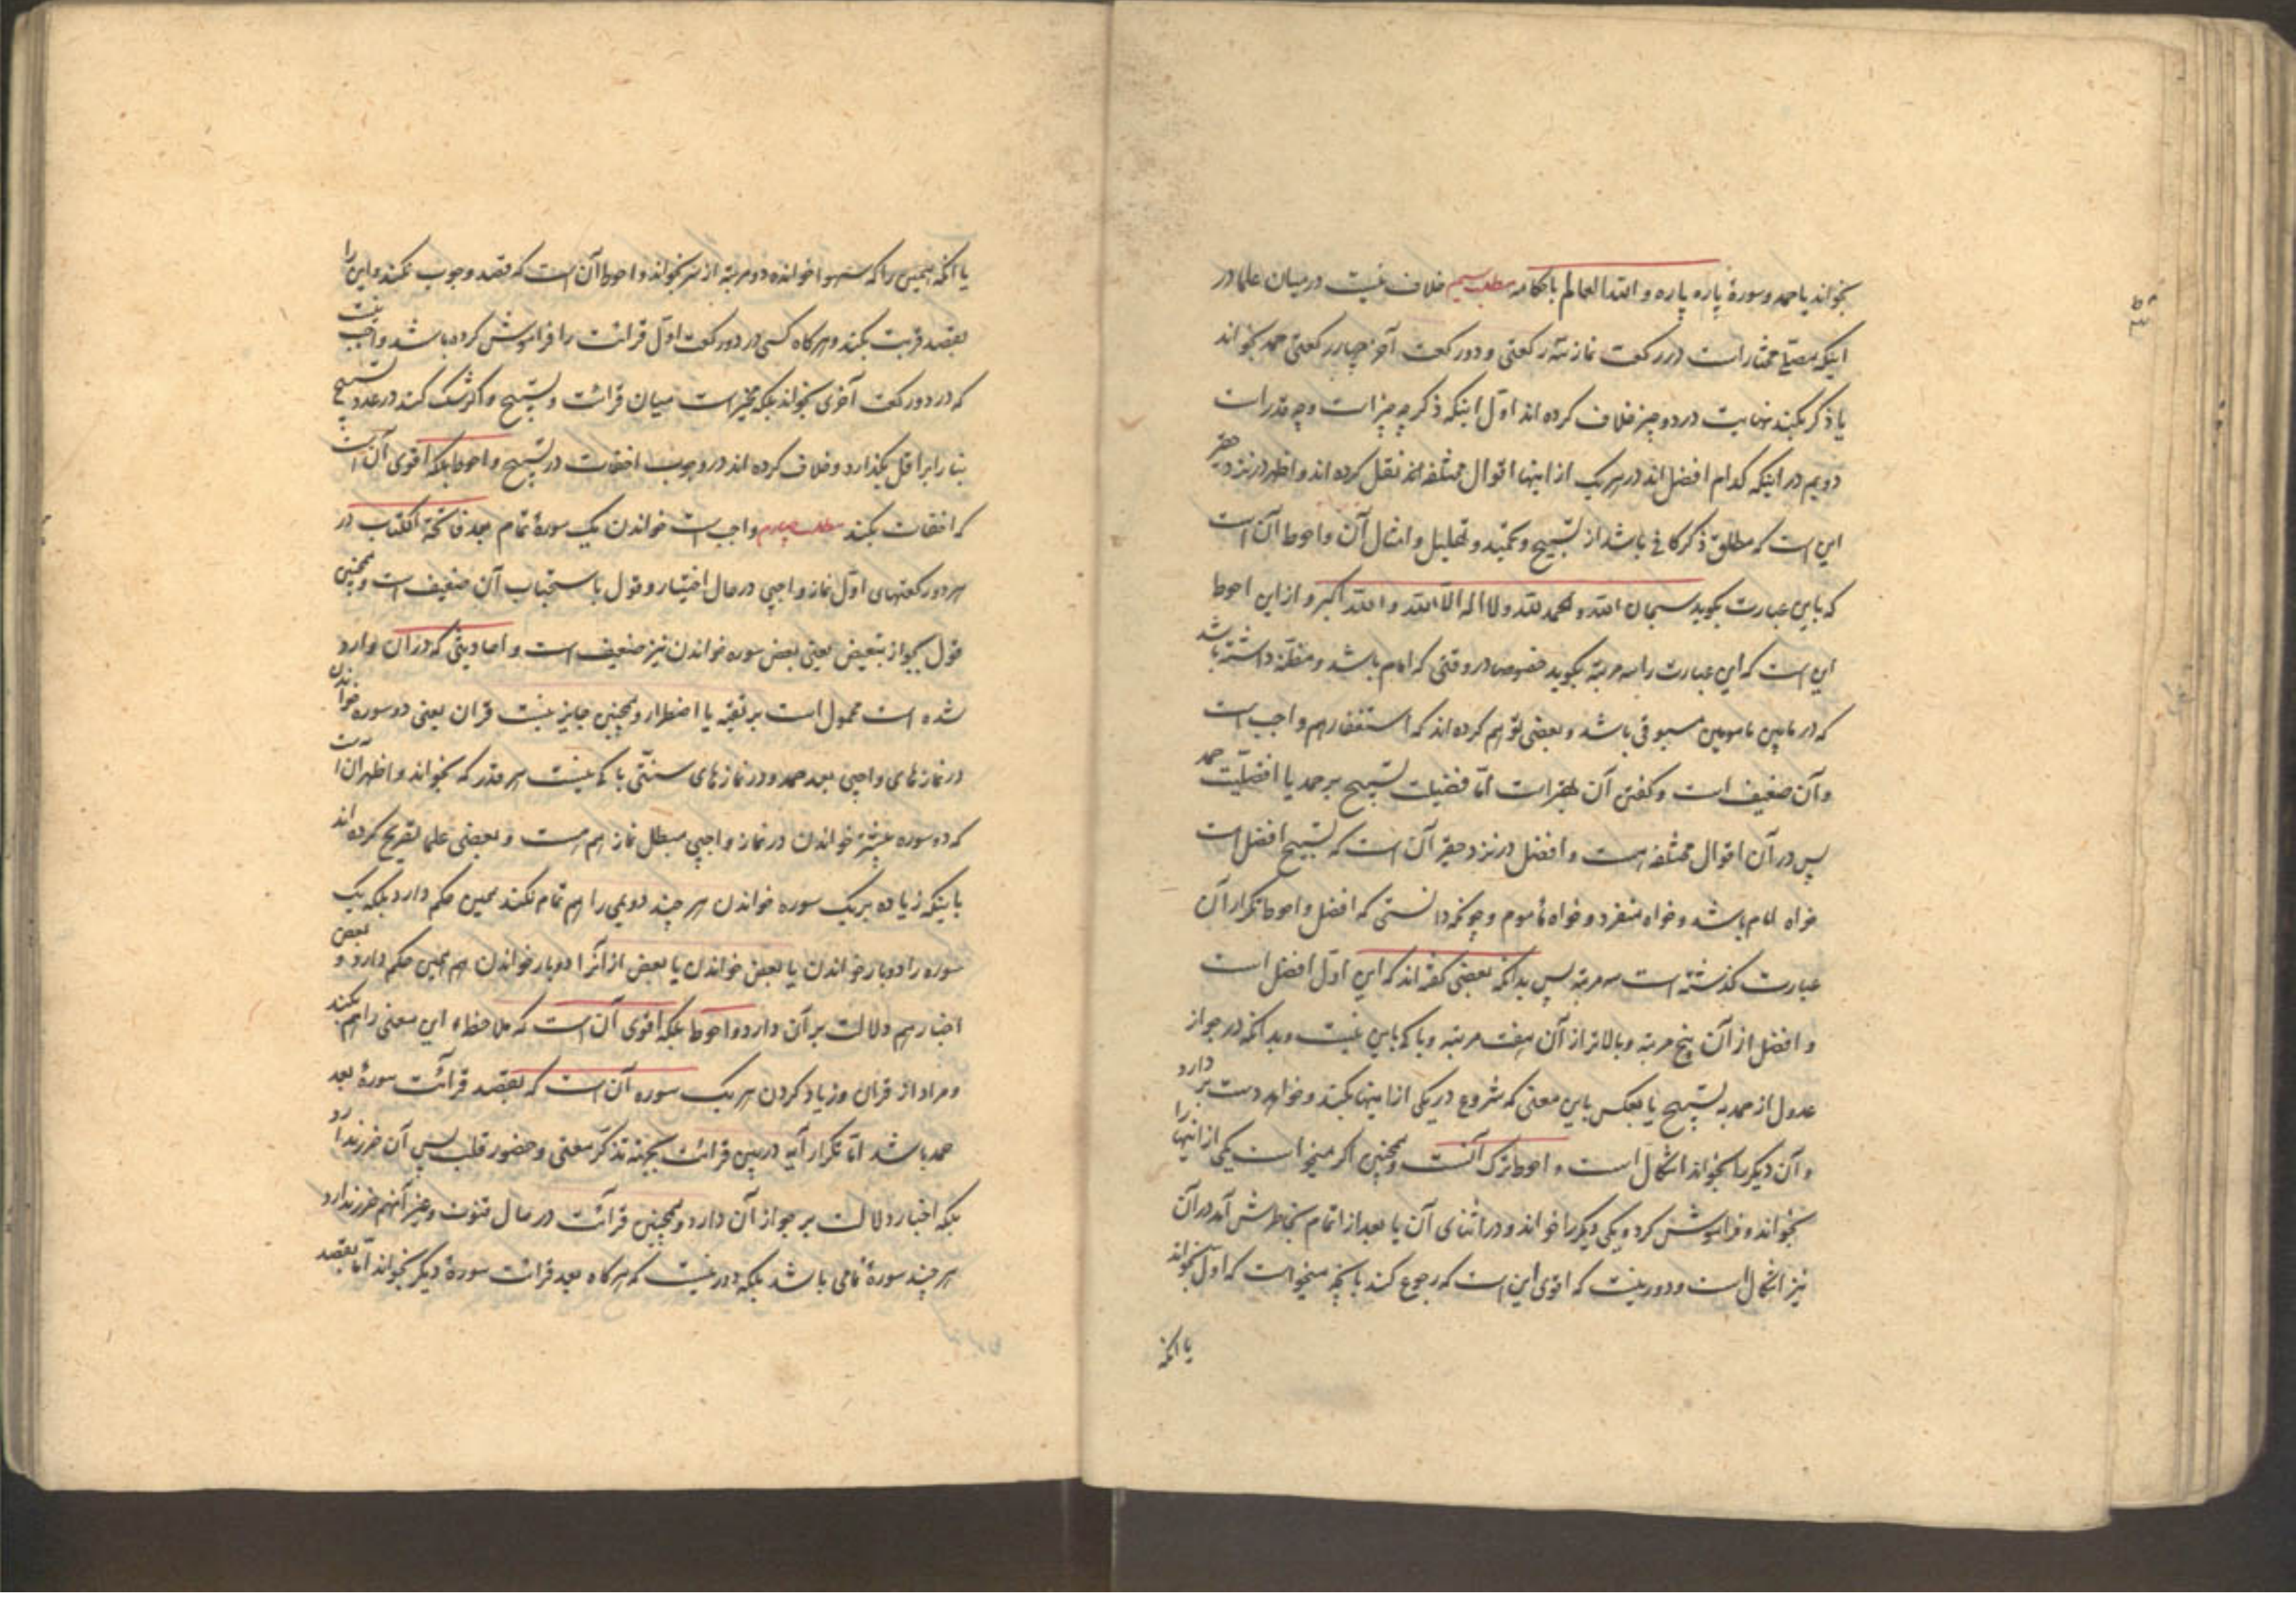 بخواند یا حمد و سورهٔ پاره پاره و الله العالم باحکامه مطلب سیم خلاف نیست در میان علما در
اینکه مصلّی مختار است در رکعت نماز سه رکعتی و دو رکعت آخر چهار رکعتی حمد بخواند
یا ذکر بکند نهایت در دو چیز خلاف کرده اند اوّل اینکه ذکر چه چیز است و چه قدر است
دویم در اینکه کدام افضل اند در هر یک از اینها اقوال مختلفه اند نقل کرده اند و اظهر در نزد حقیر
این است که مطلق ذکر کافی باشد از تسبیح و تحمید و تهلیل و امثال آن و احوط آن است
که باین عبارت بکوید سبحان الله و الحمد لله و لا اله الّا الله و الله اکبر و از این احوط
این است که این عبارت را سه مرتبه بکوید خصوصا در وقتی که امام باشد و مظنّه داشته باشد
که در مابین مامومین مسبوقی باشد و بعضی توهم کرده اند که استغفار هم واجب است
و آن ضعیف است و کفتن آن بهتر است امّا فضیلت تسبیح بر حمد یا افضلیّت حمد
پس در آن اقوال مختلفه است و افضل در نزد حقیر آن است که تسبیح افضل است
خواه امام باشد و خواه منفرد و خواه مأموم و چونکه دانستی که افضل و احوط تکرار آن
عبارت کذشته است سه مرتبه پس بدانکه بعضی کفته اند که این اوّل افضل است
و افضل از آن پنج مرتبه و بالاتر از آن هفت مرتبه و باکی باین نیست و بدانکه در جواز
عدول از حمد به تسبیح یا بعکس باین معنی که شروع در یکی از اینها بکند و خواهد دست بر دارد
و آن دیکر را بخواند اشکال است و احوط ترک آنست و همچنین اکر میخواست یکی از اینها را
بخواند و فراموش کرد و یکی دیکر را خواند و در اثنای آن یا بعد از اتمام بخاطرش آمد در آن
نیز اشکال است و دور نیست که اقوی این است که رجوع کند بآنچه میخواست که اوّل بخواند
یا آنکه
یا آنکه همین را که سهوا خوانده دو مرتبه از سر بخواند و احوط آن است که قصد وجوب نکند و این را
بقصد قربت بکند و هر کاه کسی در دو رکعت اوّل قرائت را فراموش کرده باشد واجب نیست
که در دو رکعت آخری بخواند بلکه مخیّر است میان قرائت و تسبیح و اکر شک کند در عدد تسبیح
بنا را بر اقل بکذارد و خلاف کرده اند در وجوب اخفات در تسبیح و احوط بلکه اقوی آن است
که اخفات بکند مطلب چهارم واجب است خواندن یک سورهٔ تمام بعد فاتحة الکتاب در
هر دو رکعتهای اوّل نماز واجبی در حال اختیار و قول باستحباب آن ضعیف است و همچنین
قول بجواز تبعیض یعنی بعض سوره خواندن نیز ضعیف است و احادیثی که در آن وارد
شده است محمول است بر تقیّه یا اضطرار و همچنین جایز نیست قران یعنی دو سوره خواندن
در نمازهای واجبی بعد حمد و در نمازهای سنّتی باکی نیست هر قدر که بخواند و اظهر آن است
که دو سوره بیشتر خواندن در نماز واجبی مبطل نماز هم هست و بعضی علما تصریح کرده اند
باینکه زیاده بر یک سوره خواندن هر چند دویمی را هم تمام نکند همین حکم دارد بلکه یک
سوره را دو بار خواندن یا بعض خواندن یا بعض از آنرا دو بار خواندن هم همین حکم دارد و بعض
اخبار هم دلالت بر آن دارد و احوط بلکه اقوی آن است که ملاحظهٔ این معنی را هم بکند
و مراد از قران و زیاد کردن هر یک سوره آن است که بقصد قرائت سورهٔ بعد
حمد باشد امّا تکرار آیه در بین قرائت بجهة تذکّر معنی و حضور قلب پس آن ضرر ندارد
بلکه اخبار دلالت بر جواز آن دارد و همچنین قرائت در حال قنوت و غیر آنهم ضرر ندارد
هر چند سورهٔ تمامی باشد بلکه دور نیست که هر کاه بعد قرائت سورهٔ دیکر بخواند امّا بقصد